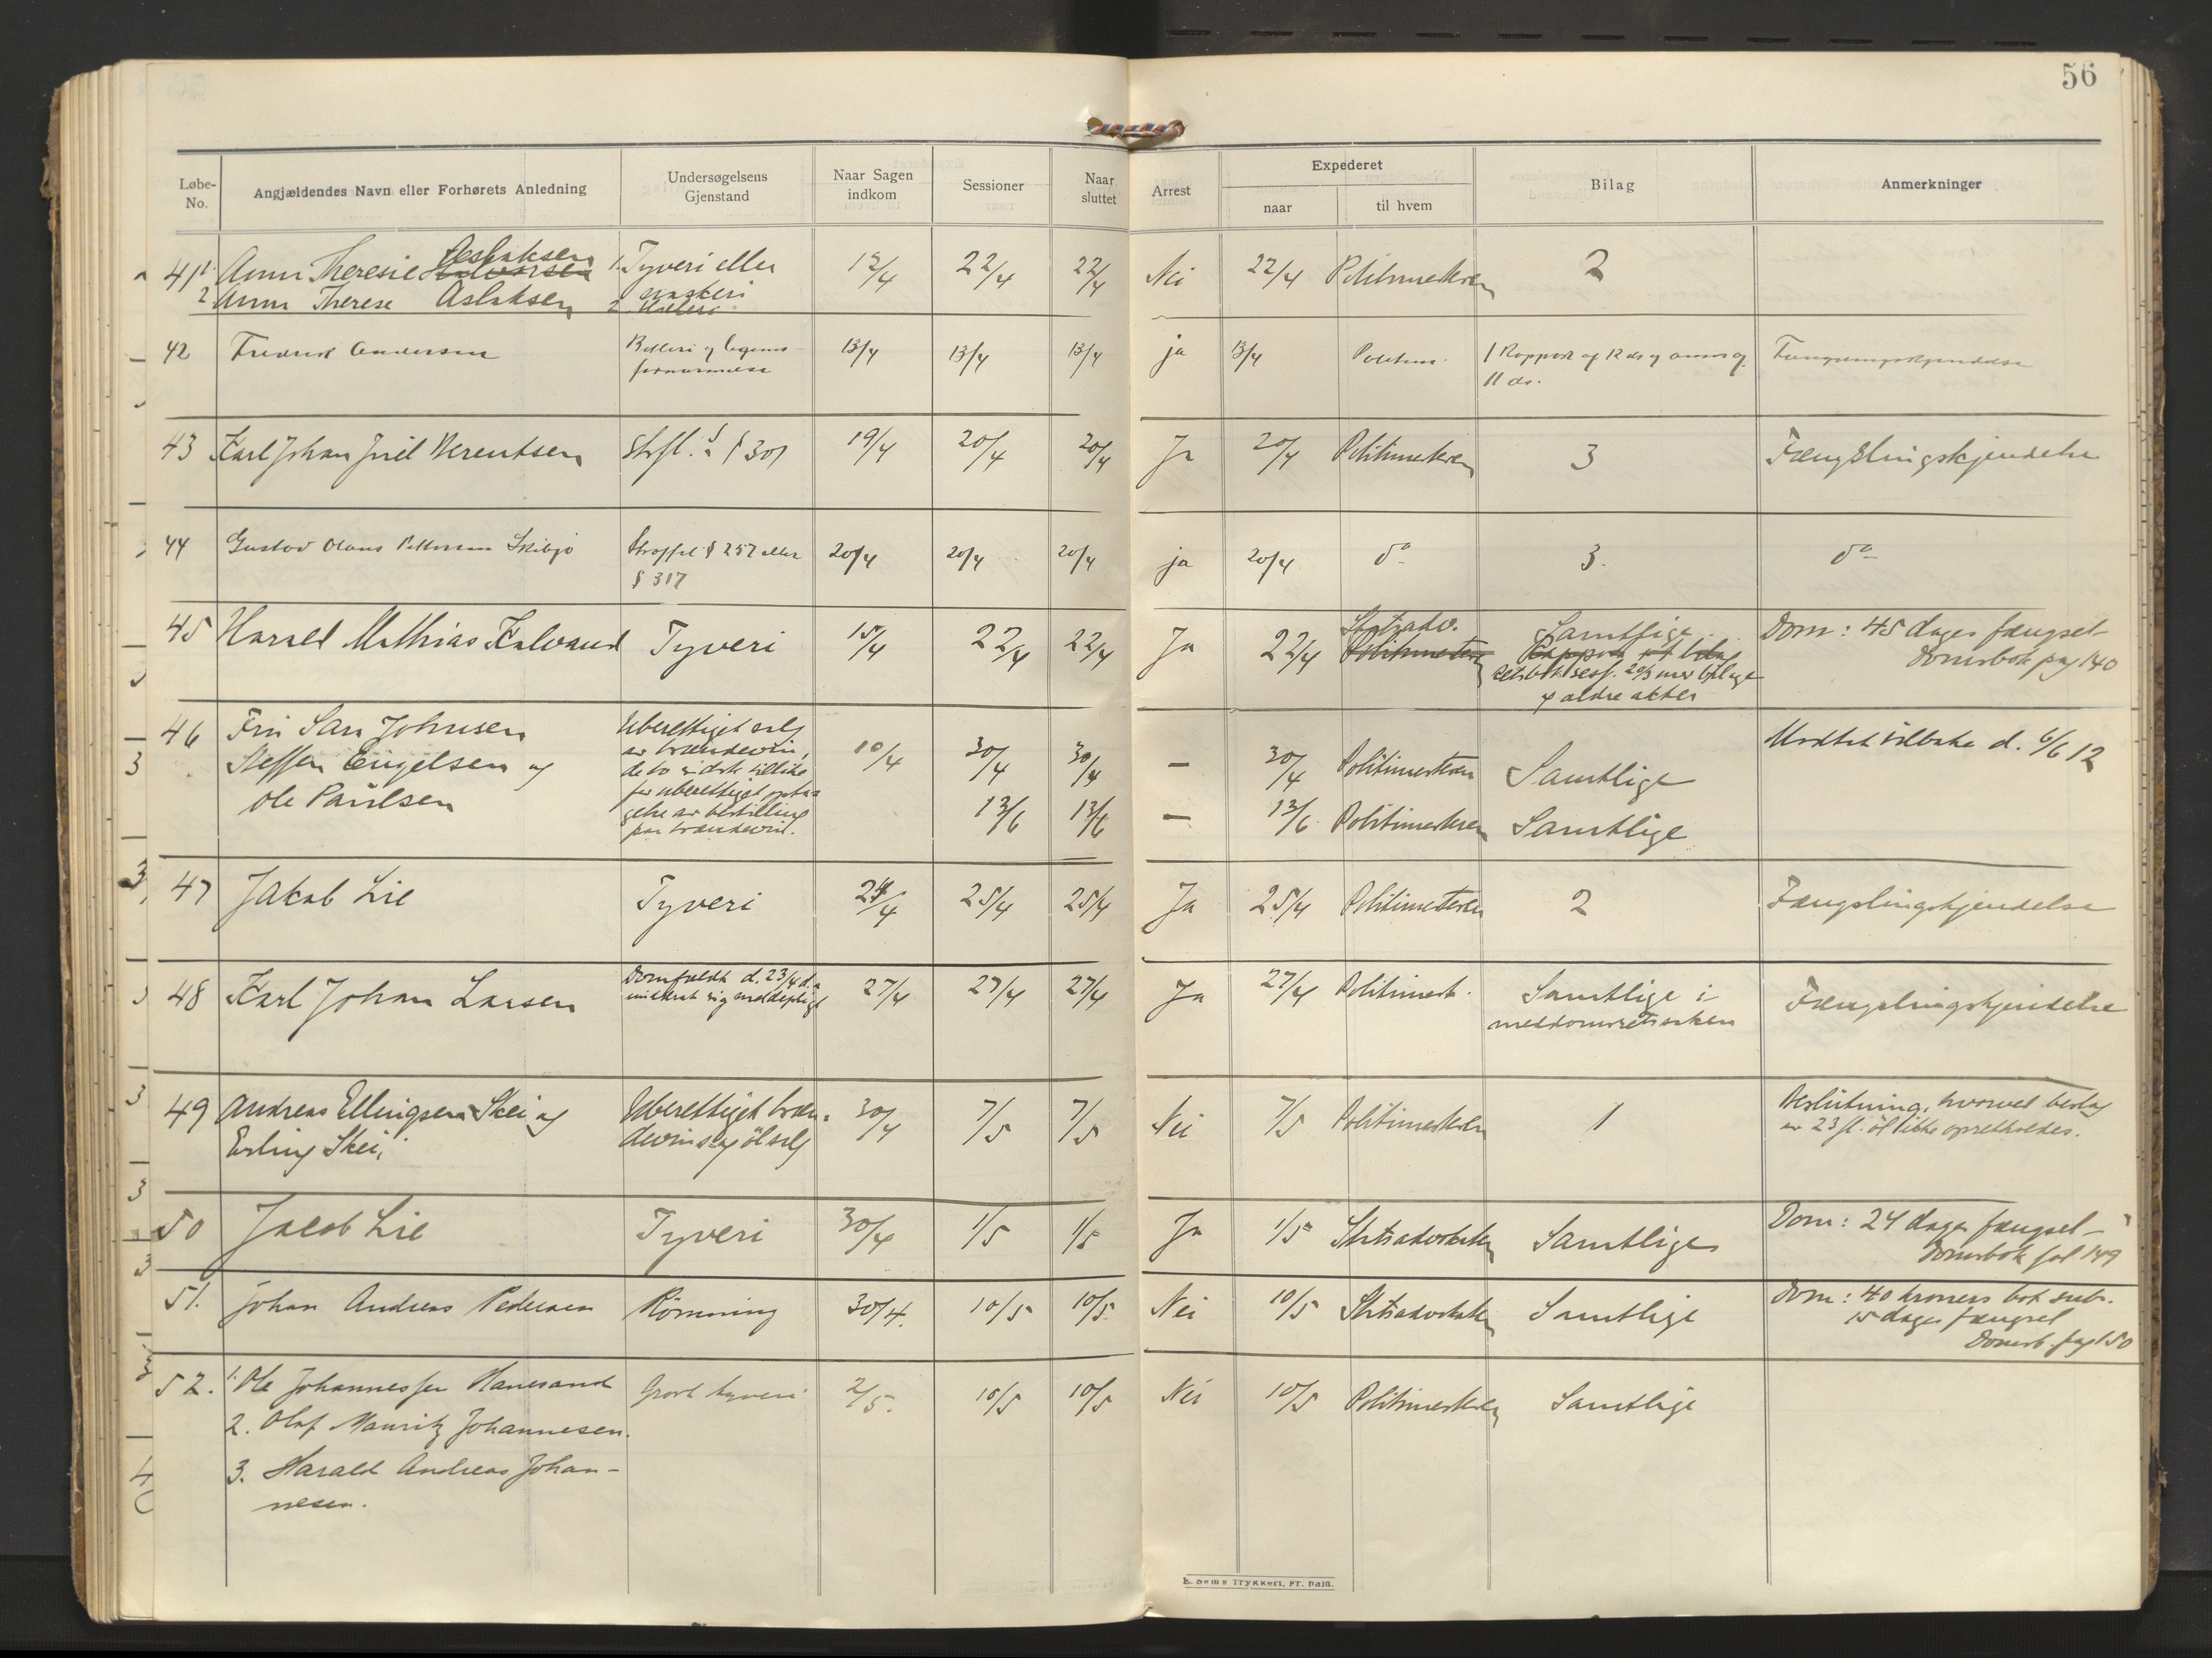 56
Løbe-No. Angjældendes Navn eller Forhørets Anledning Undersøgelsens Gjenstand Naar Sagen indkom Sessioner Naar sluttet Arrest Expederet naar til hvem Bilag Anmerkninger
41 1. Anna Theresie Halvorsen Aslaksen 1. Tyveri eller 12/4 22/4 22/4 Nei 22/4 Politimesteren 2
2 Anna Therese Aslaksen 2 Hæleri
42 Fredrik Andersen Betleri og legems- 13/4 13/4 13/4 ja 13/4 Politim. 1 Rapport af 12 ds og
fornærmelse 11 ds.
43 Karl Johan Juel Berentsen Strfl. § 301 19/4 20/4 20/4 Ja 20/4 Politimesteren 3 Fængslingskjendelse
44 Gustav Olaus Pettersen Skibsjø Straffel § 257 eller 20/4 20/4 20/4 ja 20/4 do 3. do
§ 317
45 Harald Mathias Kalvand Tyveri 15/4 22/4 22/4 Ja 22/4 Statsadv. Politimesteren Samtlige Dom: 45 dages fængsel
Rapport Domsbok pag 140
retsbok sess. 20/3 med bilage
og ældre akter
46 Fru Sara Johnsen Uberettiget salg 10/4 30/4 30/4 — 30/4 Politimesteren Samtlige Modtat tilbake d. 6/6 12
Steffen Engelsen og av brændevin,
Ole Paulsen de to sidste tillike
for uberettiget opta-
gelse av bestilling 13/6 13/6 — 13/6 Politimesteren Samtlige
paa brændevin.
47 Jakob Lie Tyveri 24/4 25/4 25/4 Ja 25/4 Politimesteren 2 Fængslingskjendelse
48 Karl Johan Larsen Domfældt d. 23/4 d.a. 27/4 27/4 27/4 Ja 27/4 Politimest. Samtlige i Fængslingskjendelse
unddrat sig meldepligt meddomsretssaken
49 Andreas Ellingsen Skei og Uberettiget bræn- 30/4 7/5 7/5 Nei 7/5 Politimesteren 1 Beslutning, hvorved beslag
Erling Skei, devins og ölsalg av 23 fl. öl ikke opretholdes.
50 Jacob Lie Tyveri 30/4 1/5 1/5 Ja 1/5 Statsadvokaten Samtlige Dom: 24 dages fængsel
Domsbok fol 149
51. Johan Andreas Pedersen Römning 30/4. 10/5 10/5 Nei 10/5 Statsadvokaten Samtlige Dom: 40 kroners bot subs.
15 dages fængsel
Domsb. pag 150
52. 1. Ole Johannessen Hanesand Grovt tyveri 2/5. 10/5 10/5 Nei 10/5 Politimesteren Samtlige
2. Olaf Mauritz Johannesen.
3. Harald Andreas Johan-
nesen.
E. Sems Trykkeri, Fr. hald.